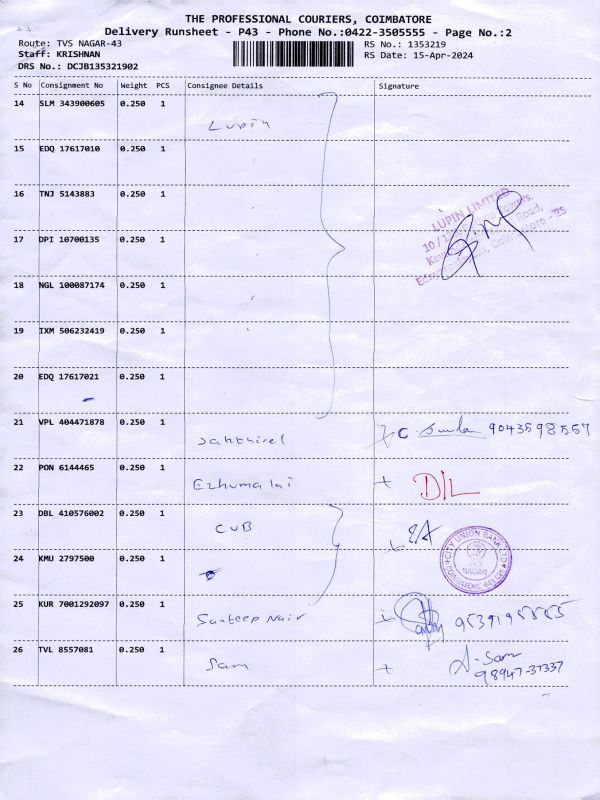 THE PROFESSIONAL COURIERS, COIMBATORE
Delivery Runsheet - P43 - Phone No.:0422-3505555 - Page No.:2
Route: TVS NAGAR-43 RS No.: 1353219
Staff: KRISHNAN RS Date: 15-Apr-2024
DRS No.: DCJB135321902
S No Consignment No Weight PCS Consignee Details Signature
14 SLM 343900605 0.250 1 Lupin
15 EDQ 17617010 0.250 1
16 TNJ 5143883 0.250 1
LUPIN LIMITED
17 DPI 10700135 0.250 1
18 NGL 100087174 0.250 1
19 IXM 506232419 0.250 1
20 EDQ 17617021 0.250 1
21 VPL 404471878 0.250 1 Sakthivel C. 9043598557
22 PON 6144465 0.250 1 Ezhumalai DIL
23 DBL 410576002 0.250 1 CUB
CITY UNION BANK LTD
TVS NAGAR
24 KMU 2797500 0.250 1
25 KUR 7001292097 0.250 1 Santeep Nair 9539195555
26 TVL 8557081 0.250 1 Sam A-Sam
98947-37337